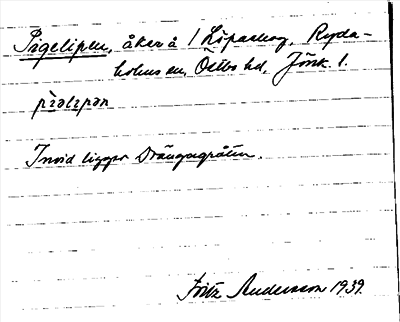 Pigelipen, åker å 1 Löpaskog, Ryda-
holms sn, Östbo hd, Jönk. l.
Invid ligger Drängagråten.
Fritz Andersson 1939.